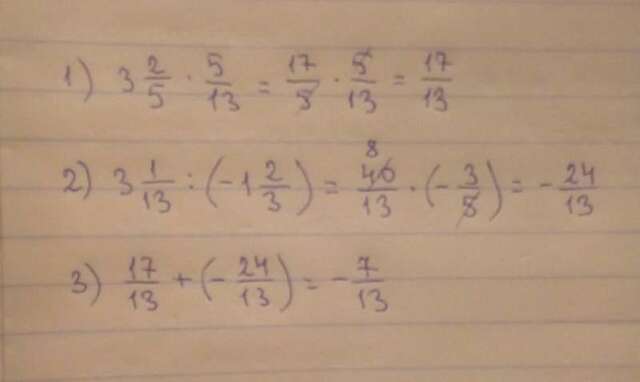 1) 3 2/5 · 5/13 = 17/5 · 5/13 = 17/13
8
2) 3 1/13 : (-1 2/3) = 40/13 · (-3/5) = -24/13
3) 17/13 + (-24/13) = -7/13